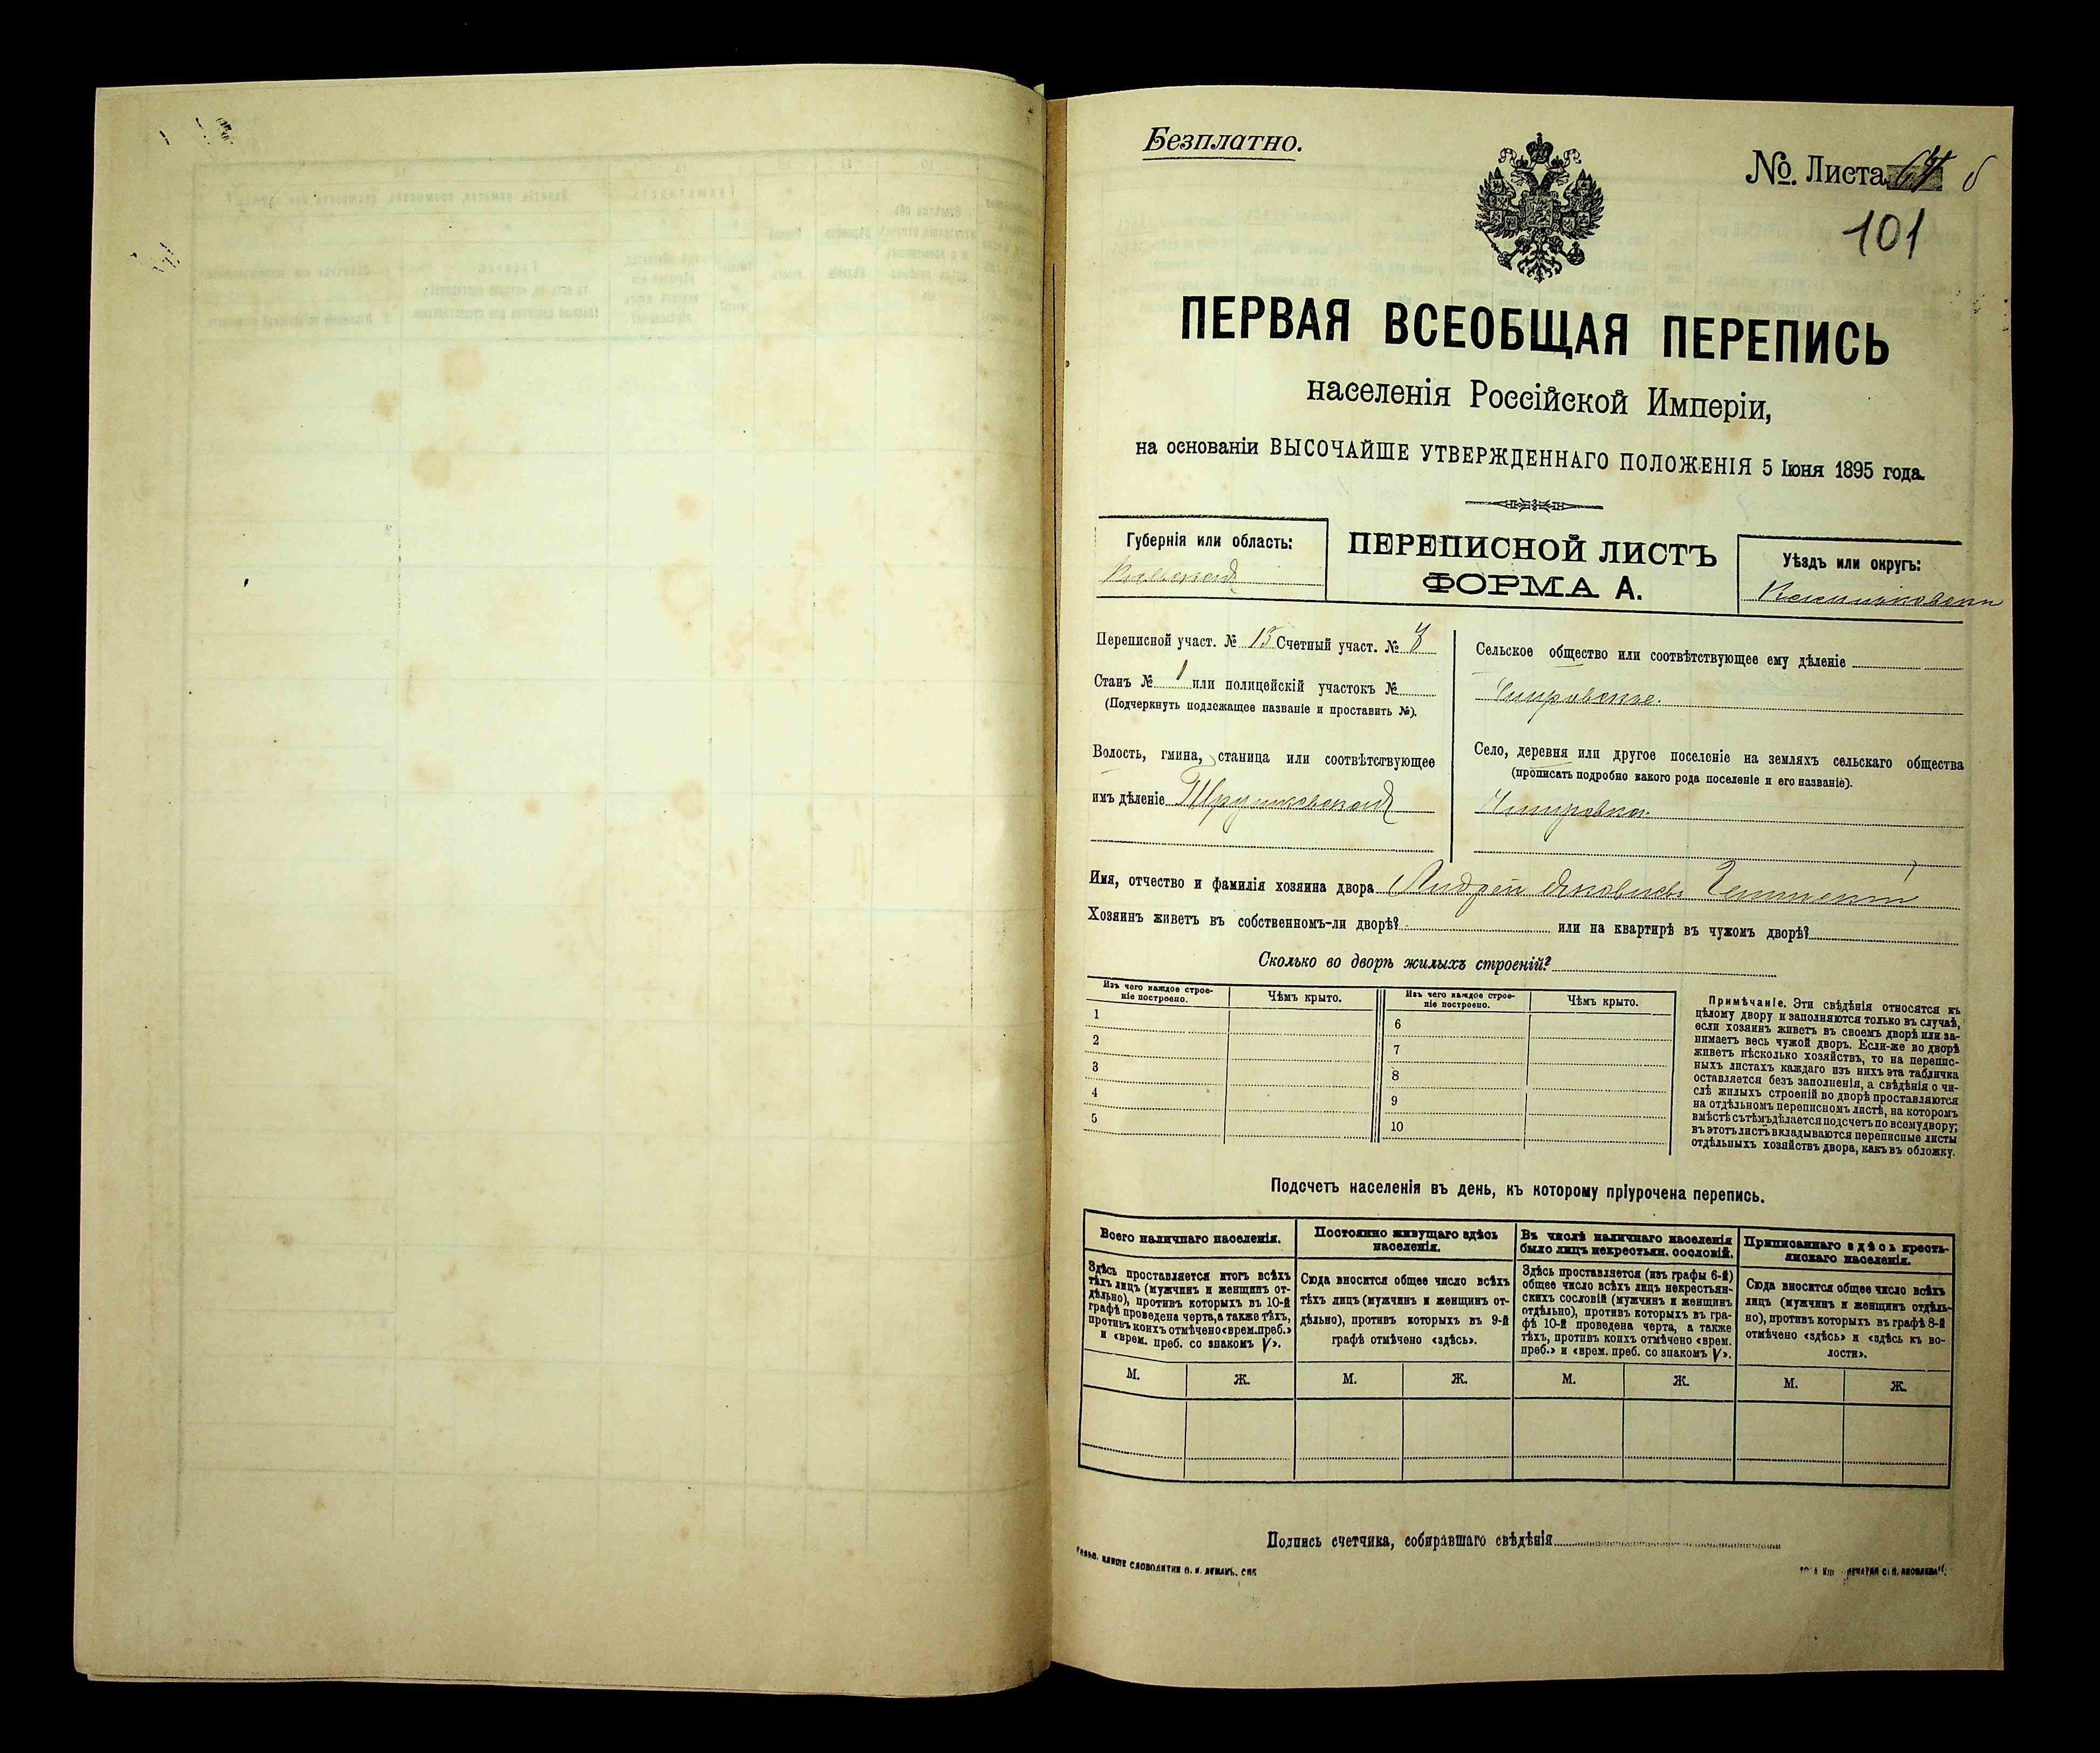 Безплатно.
№. Листа
101
ПЕРВАЯ ВСЕОБЩАЯ ПЕРЕПИСЬ
населенія Россійской Имперіи,
на основаніи ВЫСОЧАЙШЕ УТВЕРЖДЕННАГО ПОЛОЖЕНІЯ 5 Іюня 1895 года.
Губернія или область:
Кіевская
ПЕРЕПИСНОЙ ЛИСТЪ
ФОРМА А.
Уѣздъ или округъ:
Переписной участ. № 15 Счетный участ. № 3
Станъ № 1 или полицейскій участокъ №
(Подчеркнуть подлежащее названіе и проставить №).
Волость, гмина, станица или соотвѣтствующее
имъ дѣленіе
Сельское общество или соотвѣтствующее ему дѣленіе
Село, деревня или другое поселеніе на земляхъ сельскаго общества
(прописать подробно какого рода поселеніе и его названіе).
Имя, отчество и фамилія хозяина двора Андрей Яковлевъ
Хозяинъ живетъ въ собственномъ-ли дворѣ? или на квартирѣ въ чужомъ дворѣ?
Сколько во дворѣ жилыхъ строеній?
Изъ чего каждое строе-
ніе построено.
Чѣмъ крыто.
Изъ чего каждое строе-
ніе построено.
Чѣмъ крыто.
1
2
3
4
5
6
7
8
9
10
Примѣчаніе. Эти свѣдѣнія относятся къ
цѣлому двору и заполняются только въ случаѣ,
если хозяинъ живетъ въ своемъ дворѣ или за-
нимаетъ весь чужой дворъ. Если-же во дворѣ
живетъ нѣсколько хозяйствъ, то на перепис-
ныхъ листахъ каждаго изъ нихъ эта табличка
оставляется безъ заполненія, а свѣдѣнія о чи-
слѣ жилыхъ строеній во дворѣ проставляются
на отдѣльномъ переписномъ листѣ, на которомъ
вмѣстѣ съ тѣмъ дѣлается подсчетъ по всему двору;
въ этотъ листъ вкладываются переписные листы
отдѣльныхъ хозяйствъ двора, какъ въ обложку.
Подсчетъ населенія въ день, къ которому пріурочена перепись.
Всего наличнаго населенія.
Здѣсь проставляется итогъ всѣхъ
тѣхъ лицъ (мужчинъ и женщинъ от-
дѣльно), противъ которыхъ въ 10-й
графѣ проведена черта, а также тѣхъ,
противъ коихъ отмѣчено «врем. преб.»
и «врем. преб. со знакомъ V».
Постоянно живущаго здѣсь
населенія.
Сюда вносится общее число всѣхъ
тѣхъ лицъ (мужчинъ и женщинъ от-
дѣльно), противъ которыхъ въ 9-й
графѣ отмѣчено «здѣсь».
Въ числѣ наличнаго населенія
было лицъ некрестьян. сословій.
Здѣсь проставляется (изъ графы 6-й)
общее число всѣхъ лицъ некрестьян-
скихъ сословій (мужчинъ и женщинъ
отдѣльно), противъ которыхъ въ гра-
фѣ 10-й проведена черта, а также
тѣхъ, противъ коихъ отмѣчено «врем.
преб.» и «врем. преб. со знакомъ V».
Приписаннаго здѣсь кресть-
янскаго населенія.
Сюда вносится общее число всѣхъ
лицъ (мужчинъ и женщинъ отдѣль-
но), противъ которыхъ въ графѣ 8-й
отмѣчено «здѣсь» и «здѣсь къ во-
лости».
М. Ж. М. Ж. М. Ж. М. Ж.
Подпись счетчика, собиравшаго свѣдѣнія